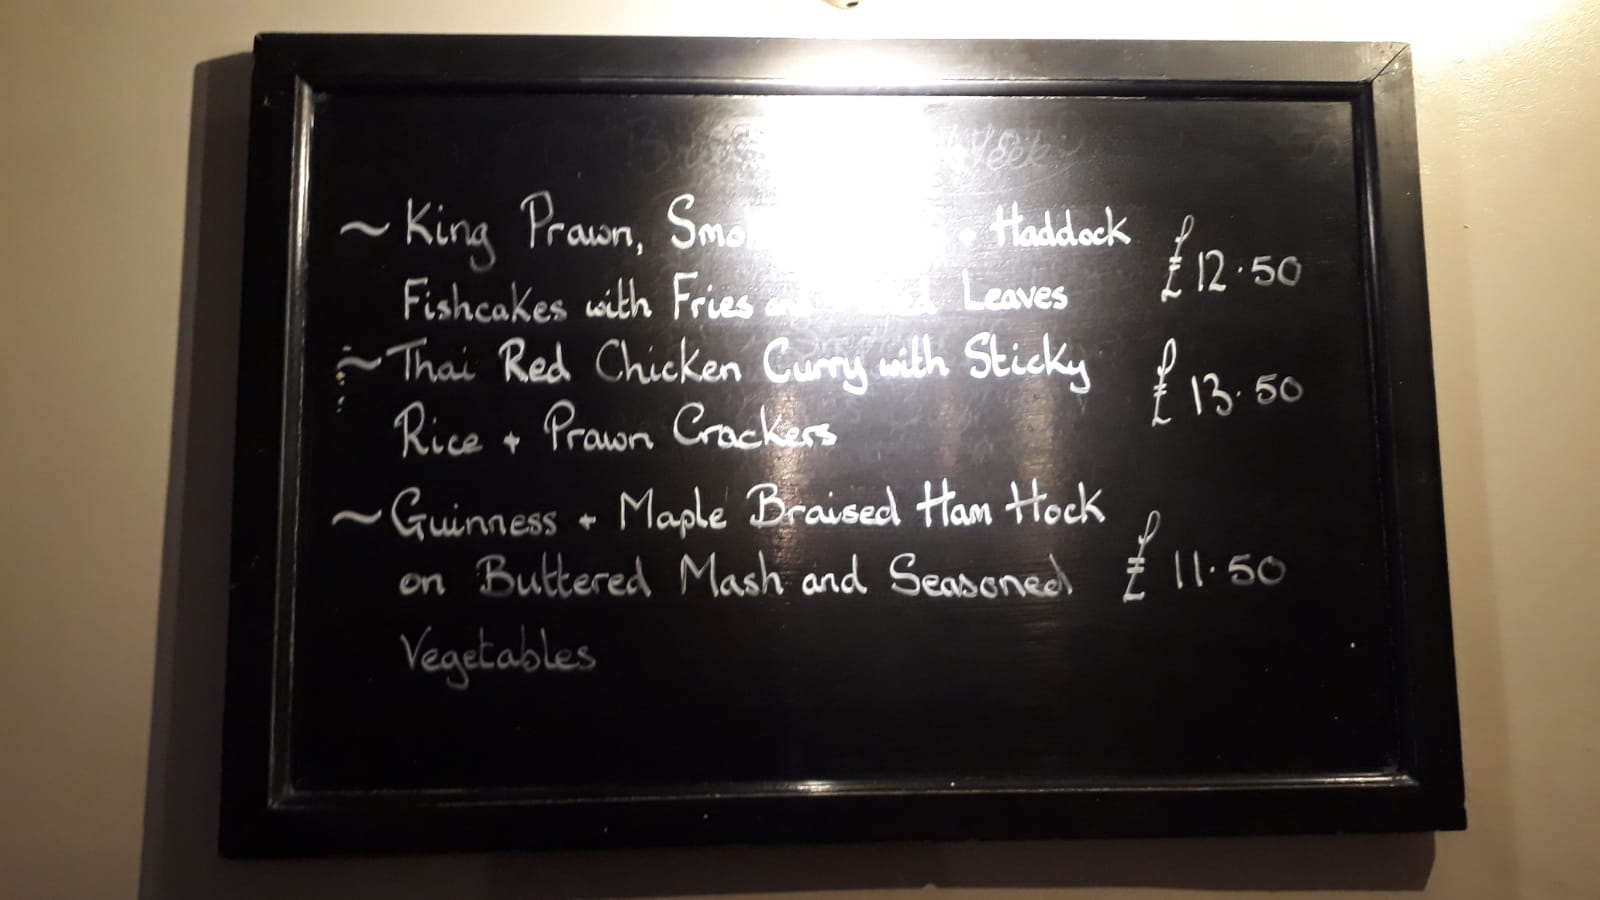 ~ King Prawn, Smo + Haddock £12.50
Fishcakes with Fries and Leaves
~ Thai Red Chicken Curry with Sticky £13.50
Rice + Prawn Crackers
~ Guinness + Maple Braised Ham Hock
on Buttered Mash and Seasoned £11.50
Vegetables